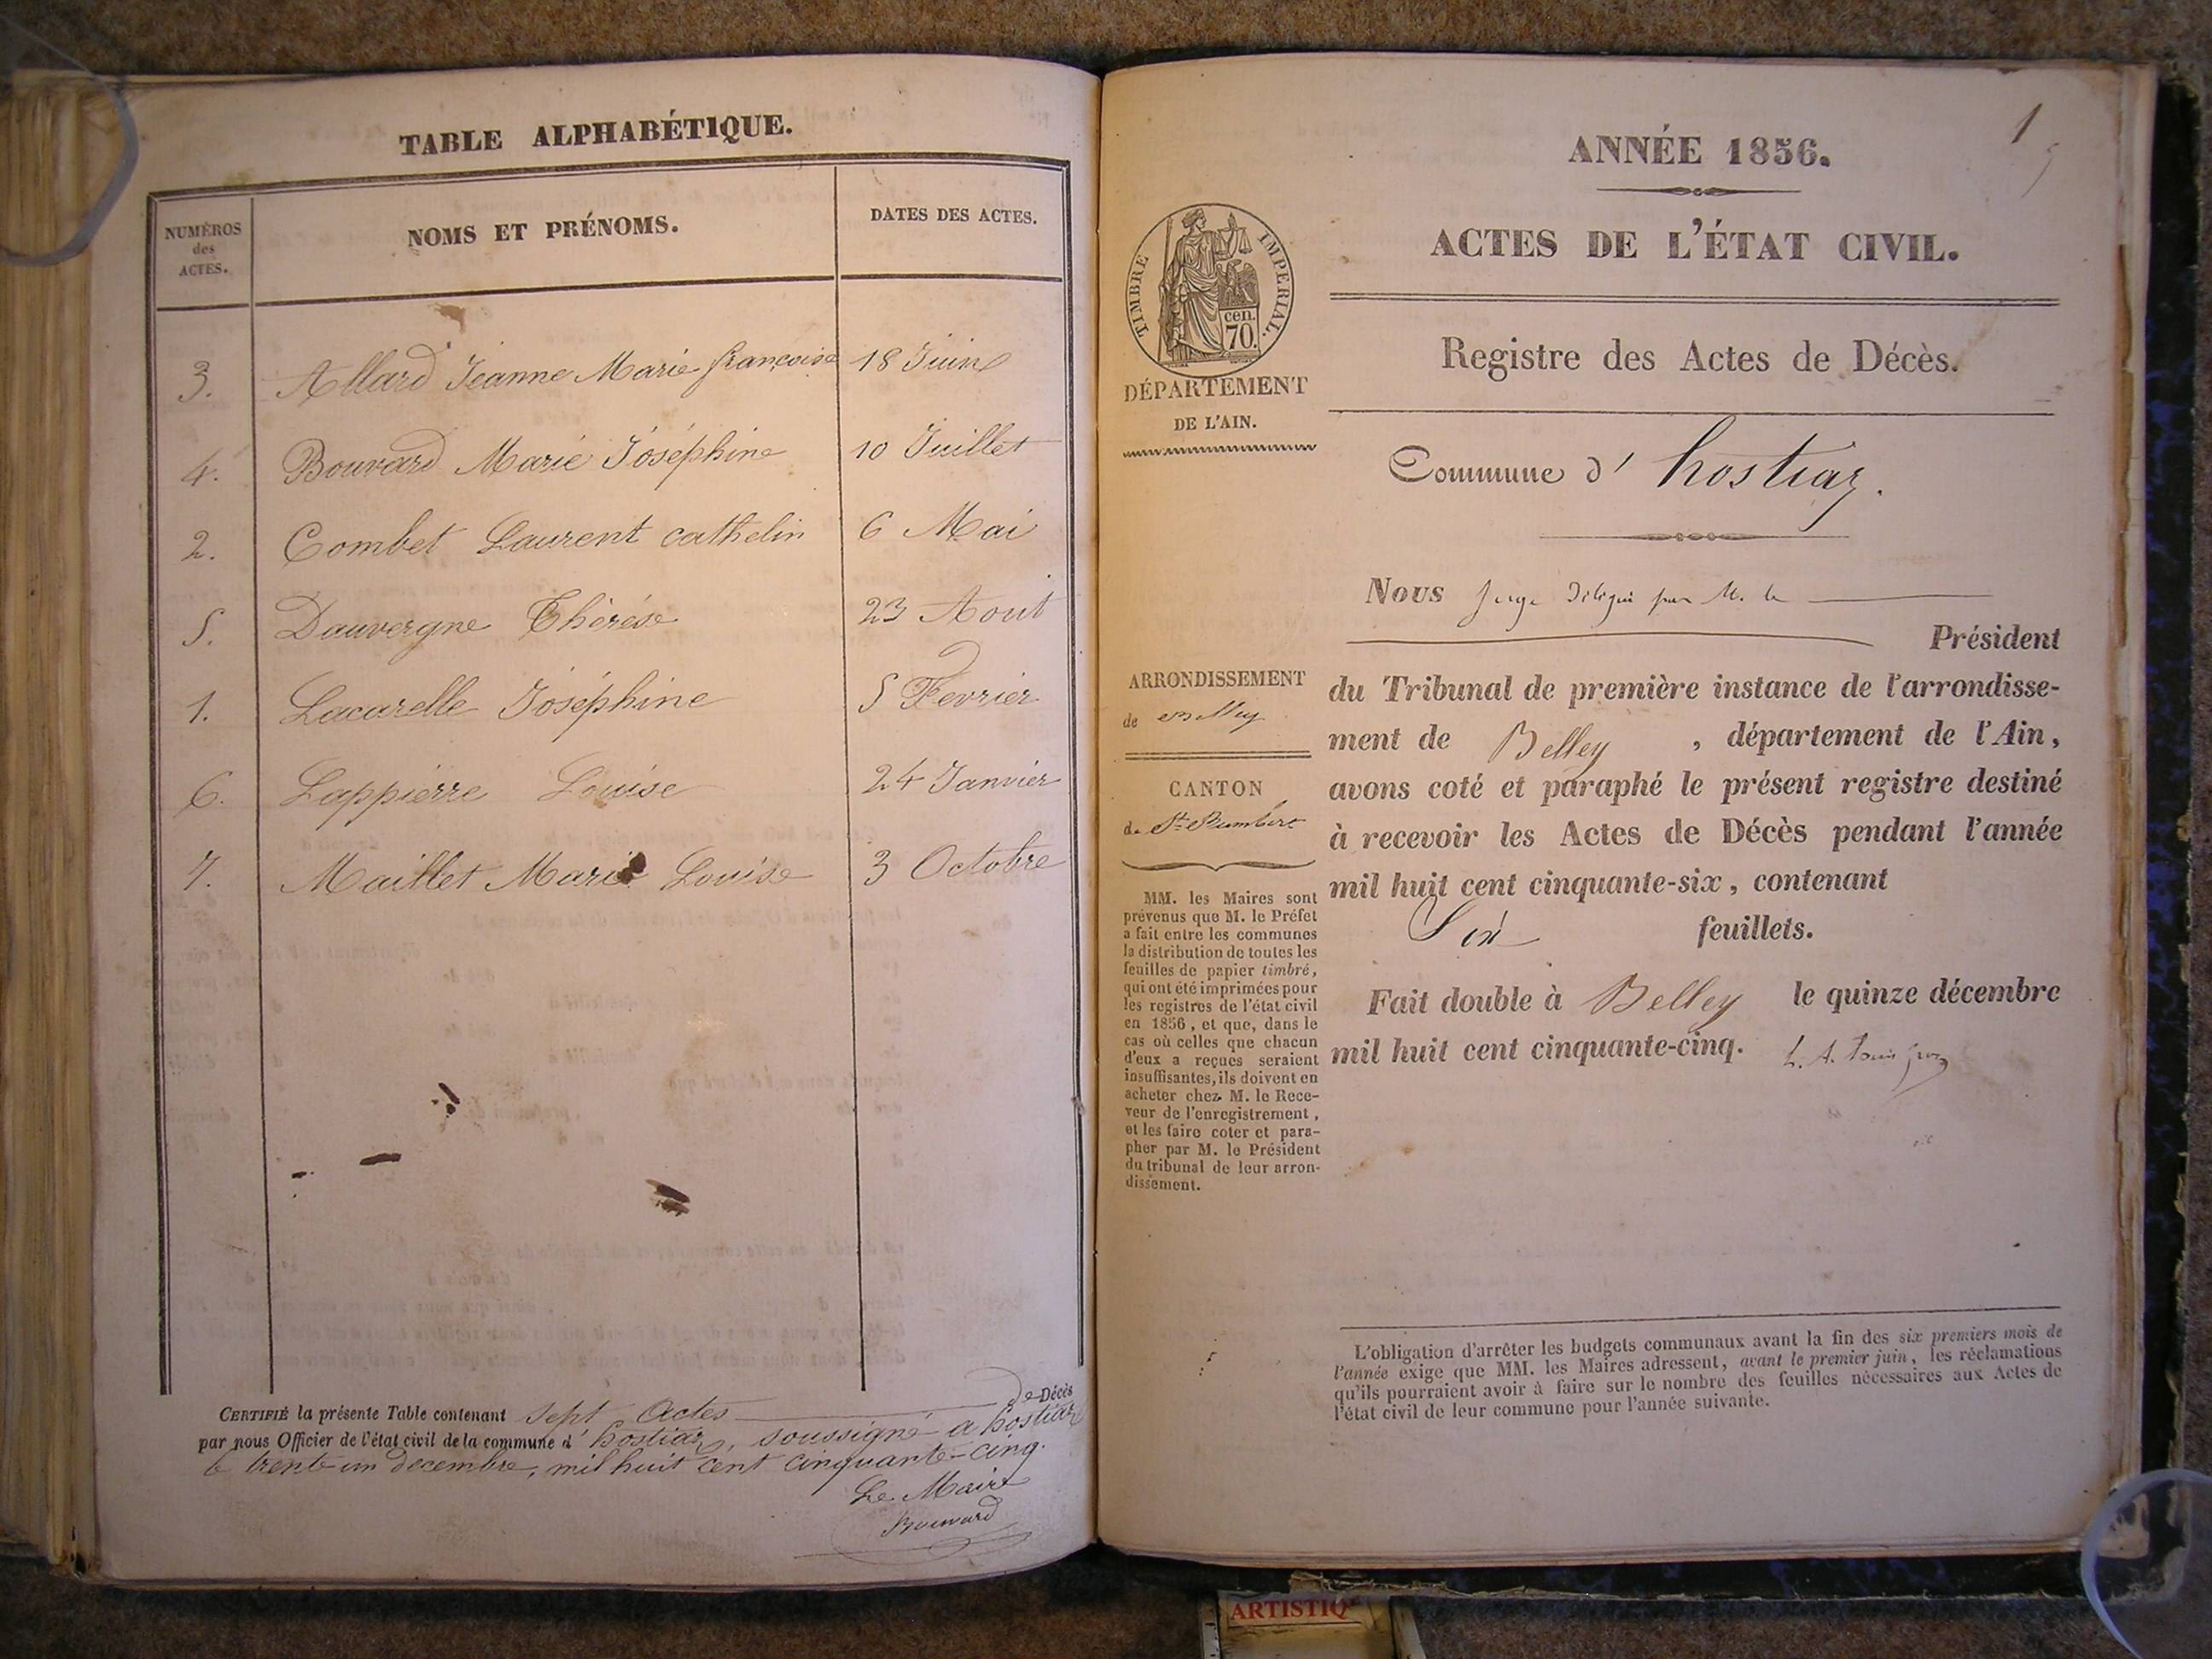 TABLE ALPHABÉTIQUE.
NUMÉROS des ACTES. NOMS ET PRÉNOMS. DATES DES ACTES.
3. Allard Jeanne Marie françoise 18 Juin
4. Bouvard Marie Joséphine 10 Juillet
2. Combet Laurent cathelin 6 Mai
5. Dauvergne Thérése 23 Aout
1. Lacarelle Joséphine 5 Fevrier
6. Lappierre Louise 24 Janvier
7. Maillet Marie Louise 3 Octobre
CERTIFIÉ la présente Table contenant Sept Actes de Décès
par nous Officier de l'état civil de la commune d' hostiaz, soussigné a hostiaz
le trente un decembre, mil huit cent cinquante-cinq.
Le Maire
Bouvard
1
ANNÉE 1856.
ACTES DE L'ÉTAT CIVIL.
Registre des Actes de Décès.
TIMBRE IMPERIAL.
cen.
70.
DÉPARTEMENT
DE L'AIN.
Commune d' hostiaz.
Nous Juge délégué par M. le
Président
du Tribunal de première instance de l'arrondisse-
ment de Belley, département de l'Ain,
avons coté et paraphé le présent registre destiné
à recevoir les Actes de Décès pendant l'année
mil huit cent cinquante-six, contenant
Six feuillets.
Fait double à Belley le quinze décembre
mil huit cent cinquante-cinq.
ARRONDISSEMENT
de Belley
CANTON
de St. Rambert
MM. les Maires sont
prévenus que M. le Préfet
a fait entre les communes
la distribution de toutes les
feuilles de papier timbré,
qui ont été imprimées pour
les registres de l'état civil
en 1856, et que, dans le
cas où celles que chacun
d'eux a reçues seraient
insuffisantes, ils doivent en
acheter chez M. le Rece-
veur de l'enregistrement,
et les faire coter et para-
pher par M. le Président
du tribunal de leur arron-
dissement.
L'obligation d'arrêter les budgets communaux avant la fin des six premiers mois de
l'année exige que MM. les Maires adressent, avant le premier juin, les réclamations
qu'ils pourraient avoir à faire sur le nombre des feuilles nécessaires aux Actes de
l'état civil de leur commune pour l'année suivante.
ARTISTIQ